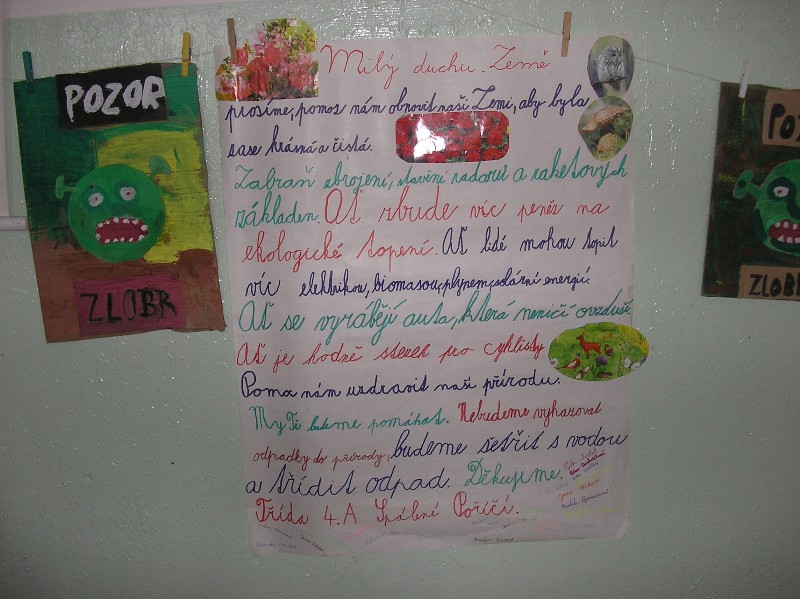 POZOR
ZLOBR
Milý duchu Země
prosíme, pomoz nám obnovit naši Zemi, aby byla
zase krásná a čistá.
Zabraň zbrojení, stavění radarů a raketových
základen. Ať zbude víc peněz na
ekologické topení. Ať lidé mohou topit
víc elektrikou, biomasou, plynem, solární energií.
Ať se vyrábějí auta, která neničí ovzduší.
Ať je hodně stezek pro cyklisty
Pomoz nám uzdravit naši přírodu.
My Ti budeme pomáhat. Nebudeme vyhazovat
odpadky do přírody, budeme šetřit s vodou
a třídit odpad. Děkujeme.
Třída 4.A Spálené Poříčí.
PO
ZLOB